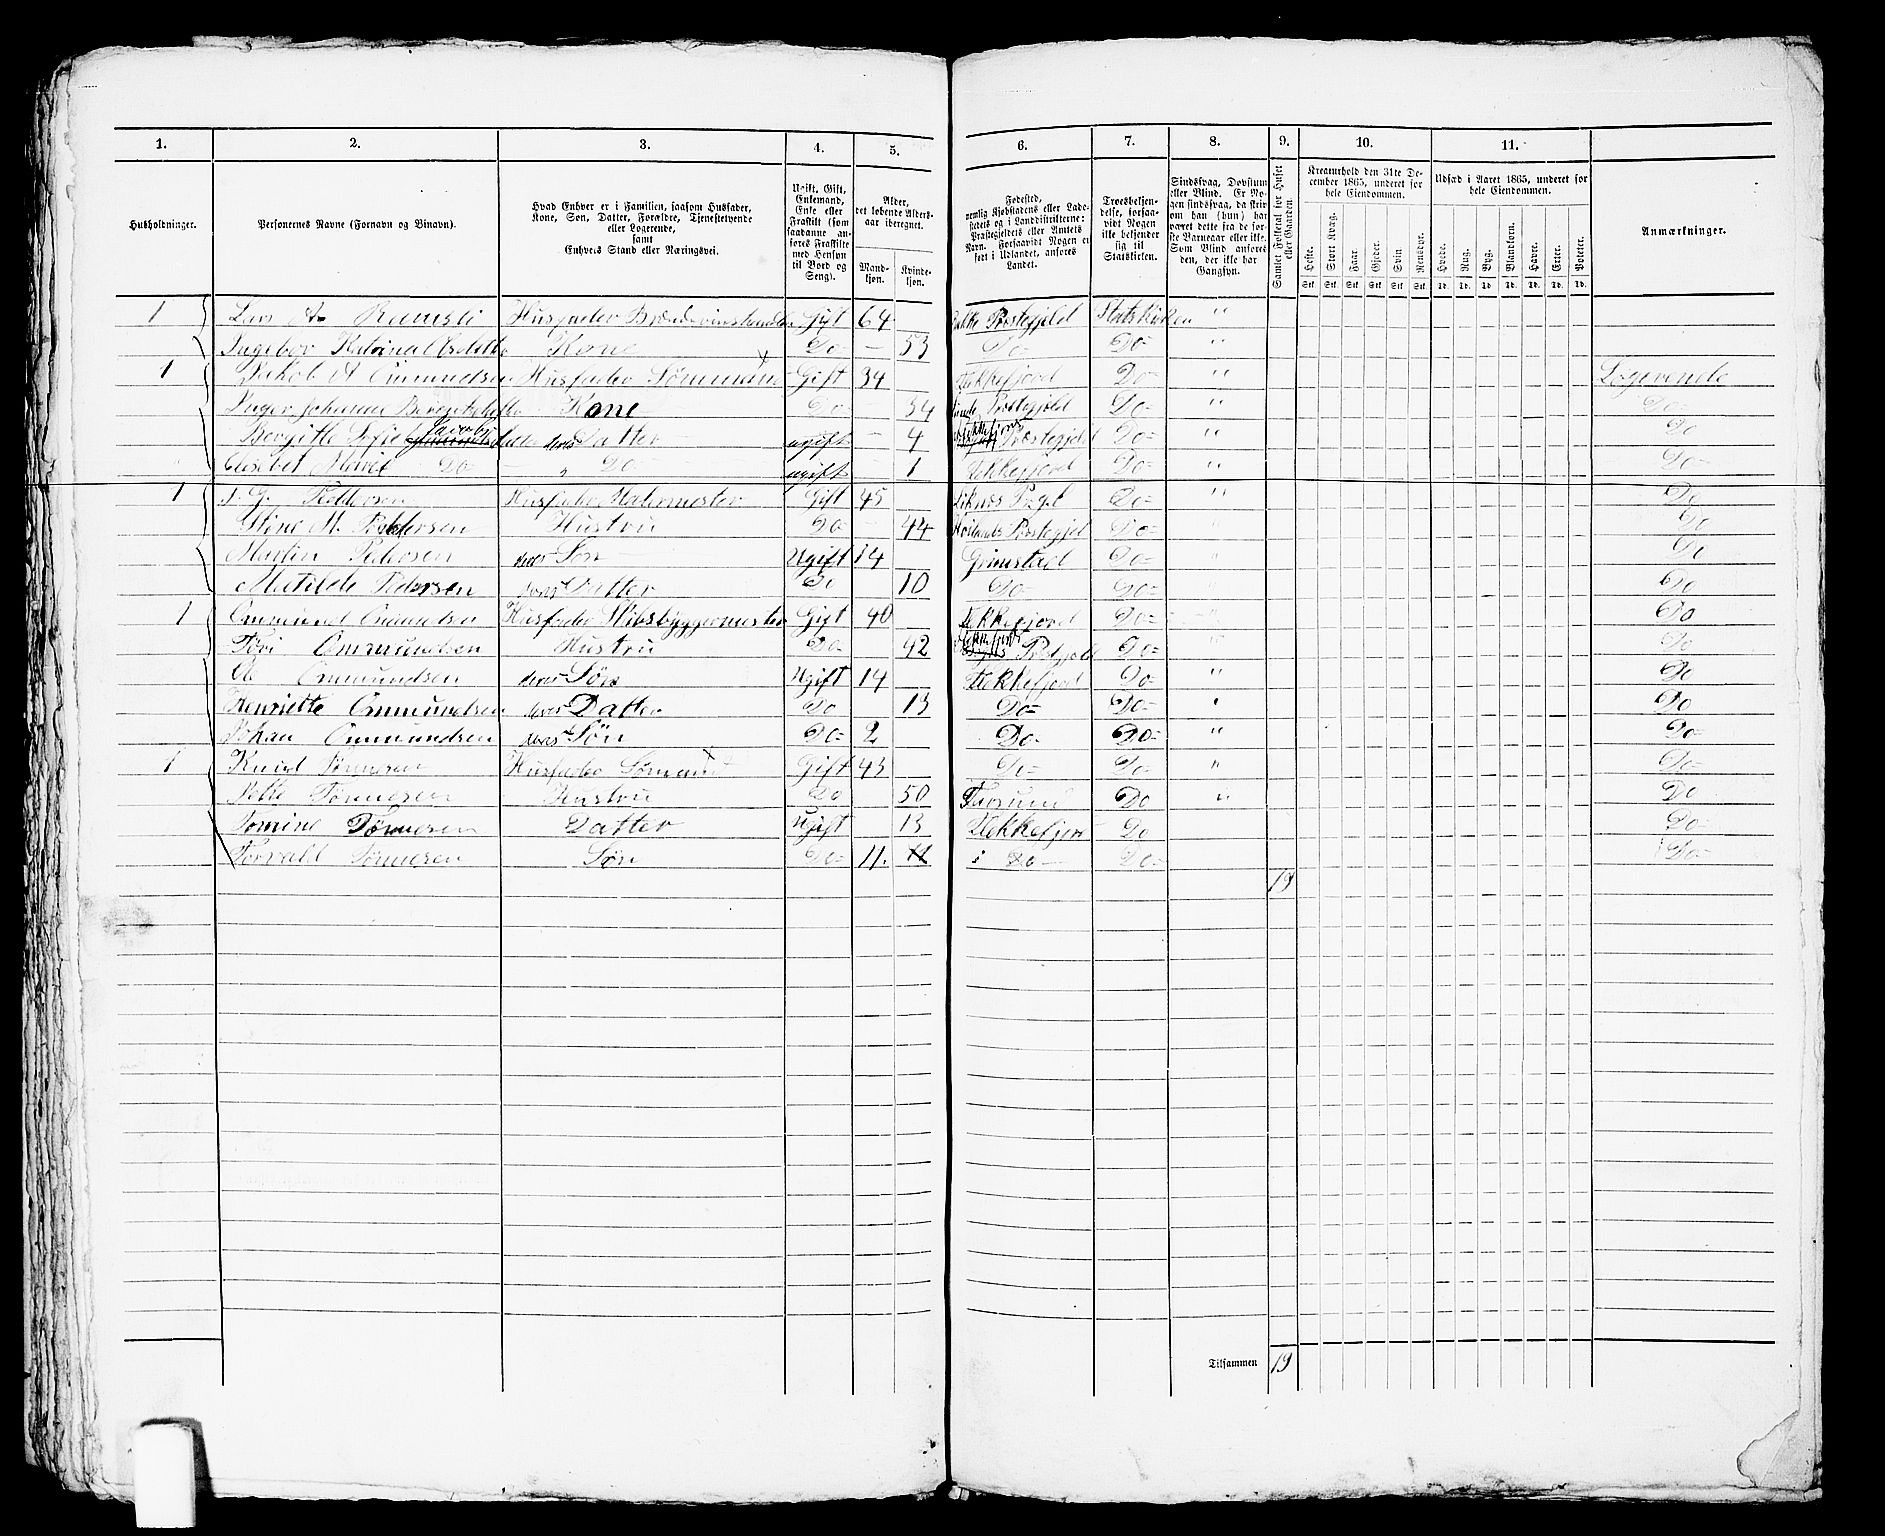 1. 2. 3. 4. 5. 6. 7. 8. 9. 10. 11.
Husholdninger.
Personernes Navne (Fornavn og Binavn).
Hvad Enhver er i Familien, saasom Husfader, Kone, Søn, Datter, Forældre, Tjenestetyende eller Logerende, samt Enhvers Stand eller Næringsvei.
Ugift, Gift, Enkemand, Enke eller Fraskilt (som saadanne anføres Fraskilte med Hensyn til Bord og Seng).
Alder, det løbende Aldersaar iberegnet.
Mandkjøn. Kvindekjøn.
Fødested, nemlig Kjøbstadens eller Ladestedets og i Landdistrikterne: Præstegjeldets eller Amtets Navn. Forsaavidt Nogen er født i Udlandet, anføres Landet.
Troesbekjendelse, forsaavidt Nogen ikke bekjender sig til Statskirken.
Sindssvag, Døvstum eller Blind. Er Nogen sindssvag, da skrives om han (hun) har været dette fra de første Barneaar eller ikke. Som Blind anføres den, der ikke har Gangsyn.
Samlet Folketal for Huset eller Gaarden.
Kreaturhold den 31te December 1865, underet for hele Eiendommen.
Heste. Stort Kvæg. Faar. Gjeder. Svin. Rensdyr.
Udsæd i Aaret 1865, underet for hele Eiendommen.
Hvede. Rug. Byg. Blandkorn. Havre. Erter. Poteter.
Anmærkninger.
Stk. Stk. Stk. Stk. Stk. Stk. Td. Td. Td. Td. Td. Td. Td.
1 Lars A. Ramsli Husfader Brændevinshandler Gift 64 Bakke Præstegjeld Statskirken "
Ingebor Katrina Kone Do - 53 Do- Do- "
1 Jakob A Ommundsen Husfader Sømmand Gift 34 Flekkefjord Do- " Logerende
Inger Johanne Kone Do- 34 Præstegjeld Do- " Do-
Bergitte Sofie Jacobs deres Datter ugift - 4 Præstegjeld Do- " Do
Elisebet Marie Do- " Do- ugift - 1 Flekkefjord Do- " Do-
1 J. G. Pedersen Husfader Malermester Gift 45 Liknæs Pgel Do- " Do
Stine M. Pedersen Hustru Do- - 44 Præstegjel Do- " Do
Martin Pedersen deres Søn Ugift 14 Grimstad Do- " Do
Matilde Pedersen deres Datter Do 10 Do- Do- Do
1 Ommund Ommundsen Husfader Skibsbyggermester Gift 40 Flekkefjord Do- Do
Tøri Ommundsen Hustru Do- 42 Præstgjeld Do- " Do
Ole Ommundsen deres Søn Ugift 14 Flekkefjord Do- " Do
Henriette Ommundsen deres Datter Do 13 Do- Do- " Do
Johan Ommundsen deres Søn Do- 2 Do- Do- " Do-
1 Knud Tønnesen Husfader Sømand Gift 43 Do- Do- " Do-
Tønnesen Hustru Do 50 Farsund Do " Do
Tomine Tønnesen Datter Ugift 13 Flekkefjord Do Do-
Torvald Tønnesen Søn Do- 11. 11 i Do- Do- Do-
19
Tilsammen 19